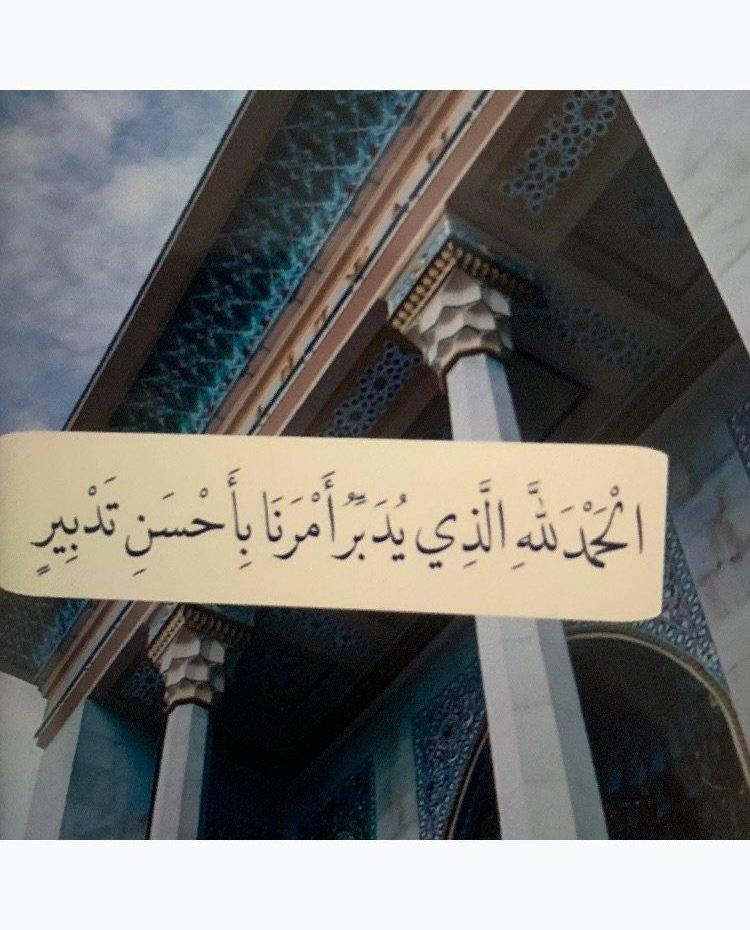 الْحَمْدَ لِلَّهِ الَّذِي يُدَبِّرُ أَمْرَنَا بِأَحْسَنِ تَدْبِيرٍ